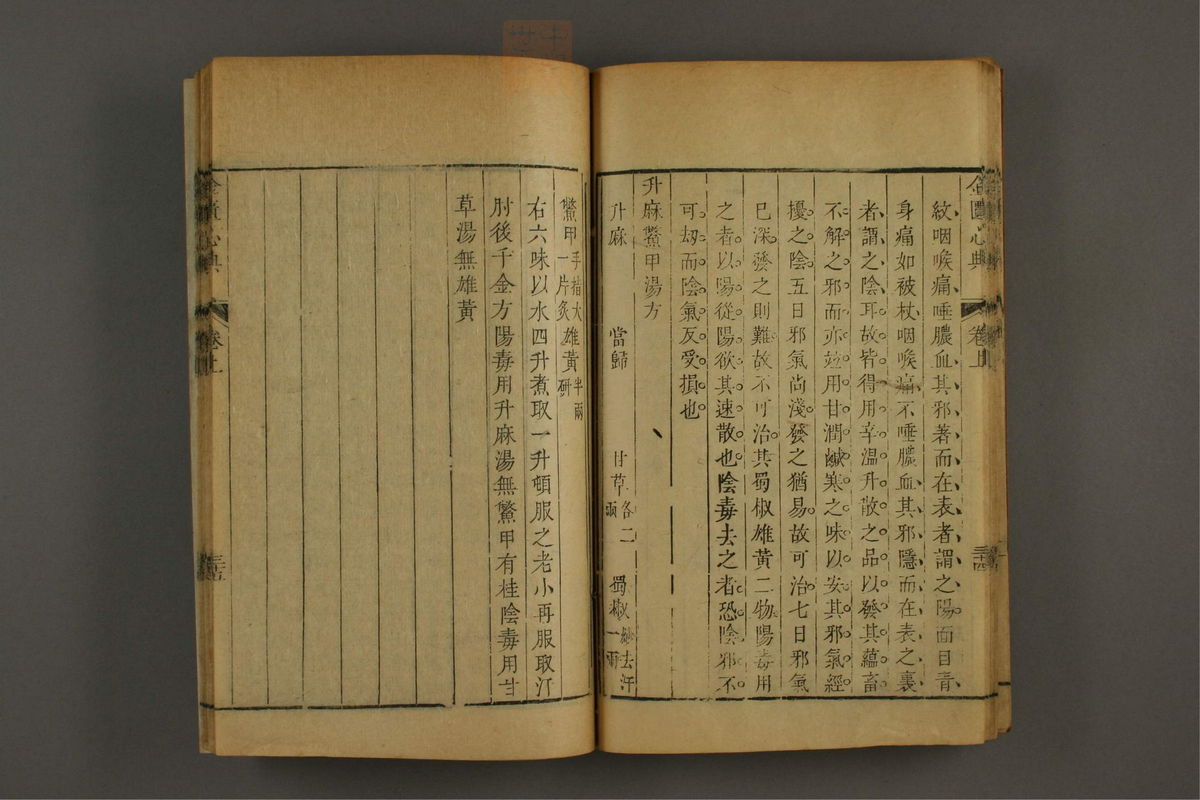 金匱心典
卷上
三十四
紋咽喉痛唾膿血其邪著而在表者謂之陽面目青
身痛如被杖咽喉痛不唾膿血其邪隱而在表之裏
者謂之陰耳故皆得用辛溫升散之品以發其蘊畜
不解之邪而亦並用甘潤鹹寒之味以安其邪氣經
擾之陰五日邪氣尚淺發之猶易故可治七日邪氣
已深發之則難故不可治其蜀椒雄黃二物陽毒用
之者以陽從陽欲其速散也陰毒去之者恐陰邪不
可劫而陰氣反受損也
升麻鱉甲湯方
升麻 當歸 甘草各二兩 蜀椒炒去汗一兩
鱉甲手指大一片炙 雄黃半兩研
右六味以水四升煮取一升頓服之老小再服取汗
肘後千金方陽毒用升麻湯無鱉甲有桂陰毒用甘
草湯無雄黃
金匱心典
卷上
三十五